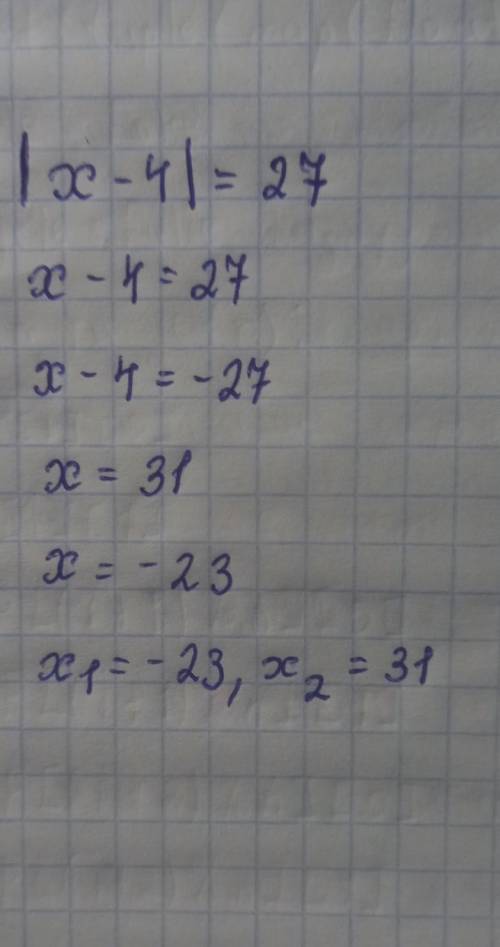 |x - 4| = 27
x - 4 = 27
x - 4 = -27
x = 31
x = -23
x₁ = -23, x₂ = 31